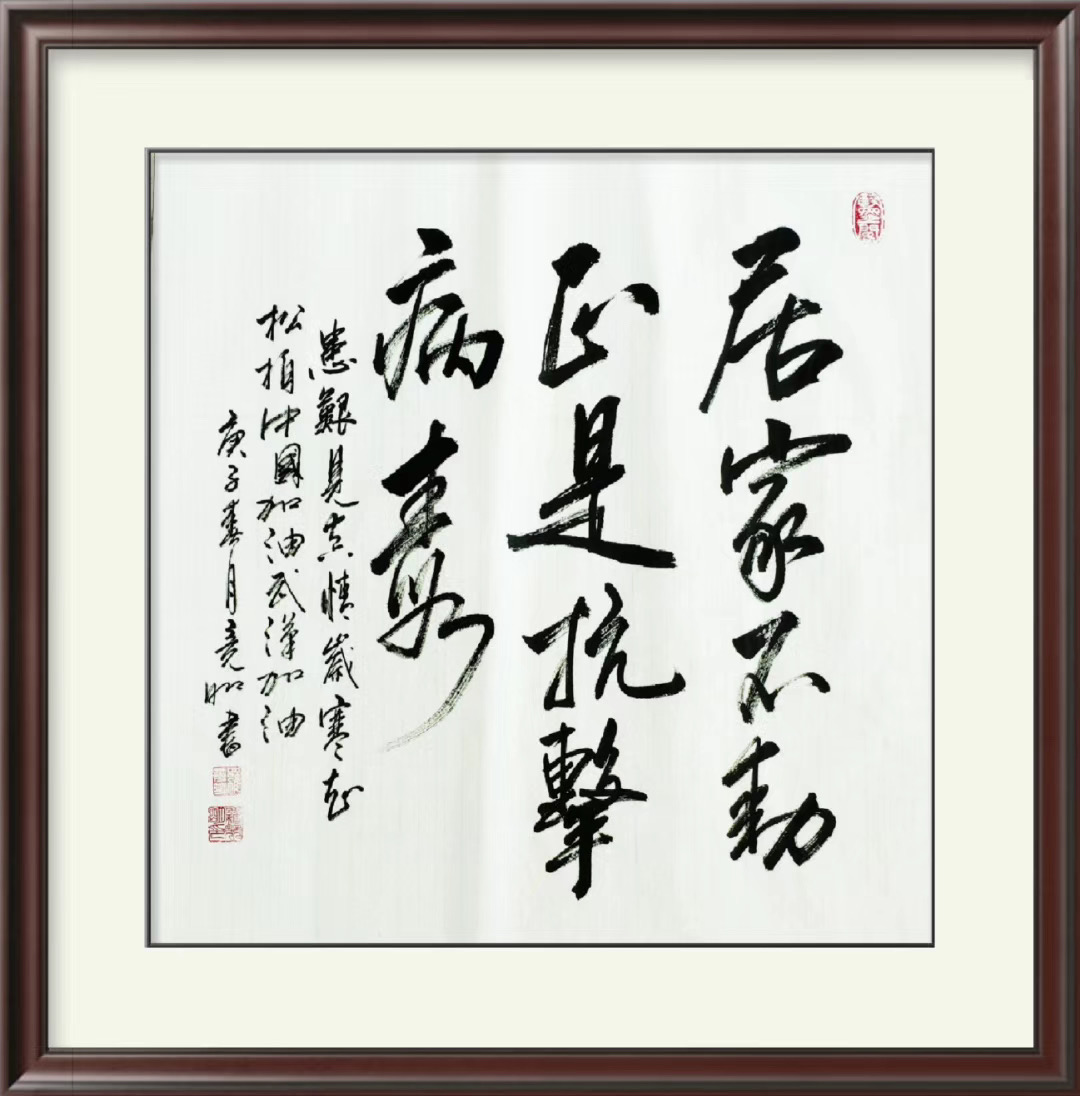 居家不動
正是抗擊
病毒
患難見真情歲寒知
松柏中國加油武漢加油
庚子春月竞昭書